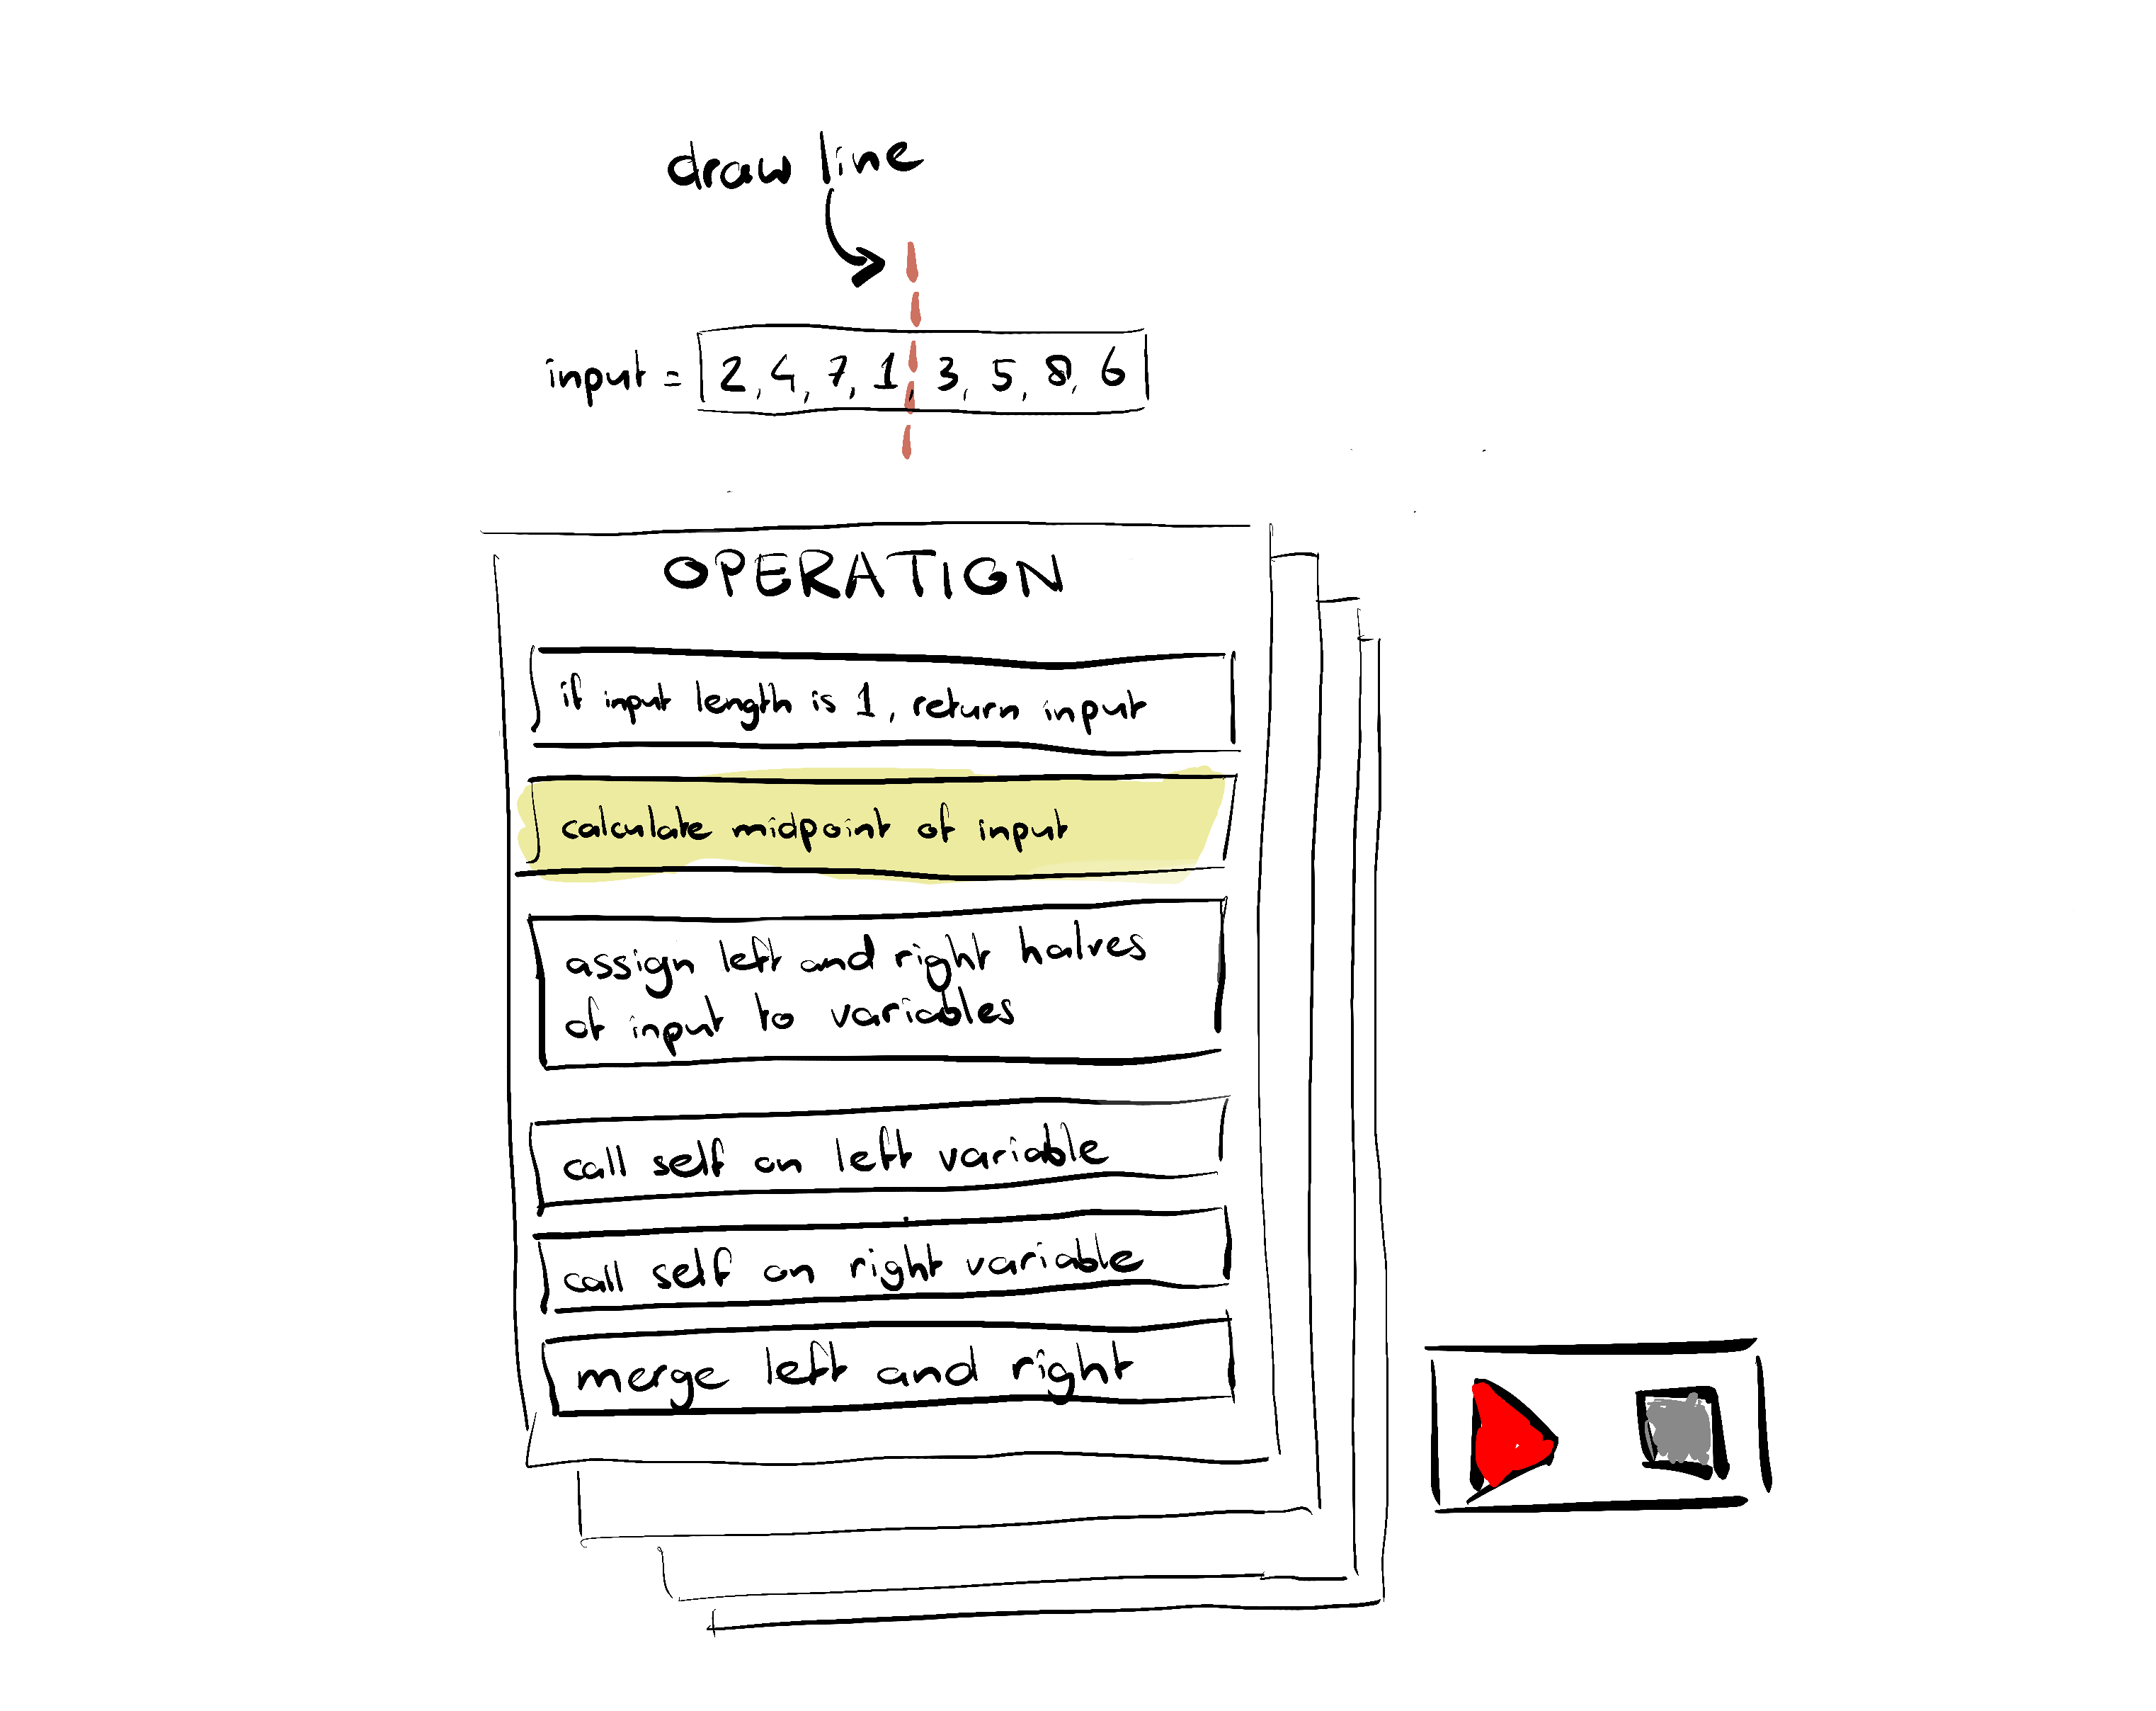 draw line
input = 2, 4, 7, 1, 3, 5, 8, 6
OPERATION
if input length is 1, return input
calculate midpoint of input
assign left and right halves
of input to variables
call self on left variable
call self on right variable
merge left and right